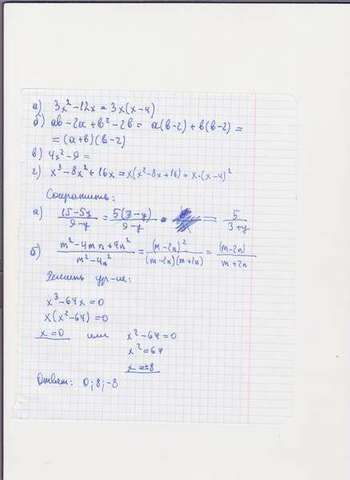 а) 3x²-12x = 3x(x-4)
б) ab-2a+b²-2b = a(b-2)+b(b-2) =
= (a+b)(b-2)
в) 4x²-9 =
г) x³-8x²+16x = x(x²-8x+16) = x·(x-4)²
Сократить:
а) 15-5y/9-y = 5(3-y)/9-y = 5/3+y
б) m²-4mn+4n²/m²-4n² = (m-2n)²/(m-2n)(m+2n) = (m-2n)/m+2n
Решить ур-ие:
x³-64x=0
x(x²-64)=0
x=0 или x²-64=0
x²=64
x=±8
Ответ: 0;8;-8